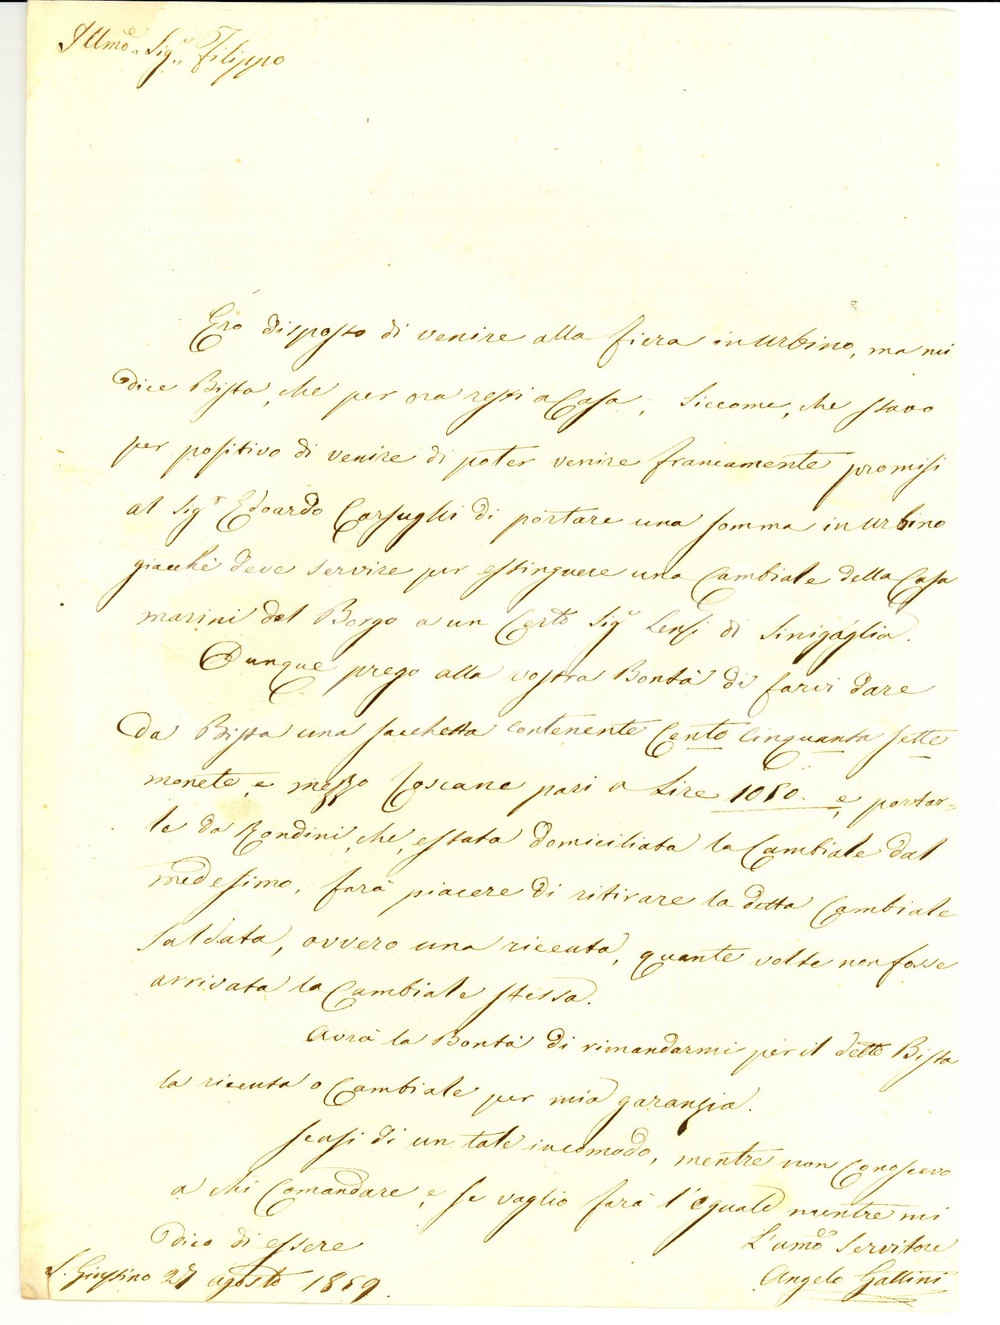 Illmo Sigr Filippo
Ero disposto di venire alla fiera in Urbino, ma mi
dice Bista, che per ora resti a Casa, Siccome, che stavo
per positivo di venire di poter venire francamente promisi
al Sigr Edoardo Corsughi di portare una somma in Urbino
giacchè deve servire per estinguere una Cambiale della Casa
marini del Borgo a un Certo Sigr Lensi di Sinigaglia.
Dunque prego alla vostra Bontà di farvi dare
da Bista una sacchetta contenente Cento Cinquanta sette
monete, e mezzo Toscane pari a Lire 1050. e, portar-
le da Rondini, che, essata domiciliata la Cambiale dal
medesimo, farà piacere di ritirare la detta Cambiale
saldata, ovvero una ricevuta, quante volte non fosse
arrivata la Cambiale stessa.
Avrà la Bontà di rimandarmi per il detto Bista
la ricevuta o Cambiale per mia garanzia.
Scusi di un tale incomodo, mentre non Conoscevo
a chi Comandare, e, se vaglio farà l'eguale mentre mi
dico di essere
L'umo Servitore
S. Giustino 27 agosto 1859.
Angelo Gattini